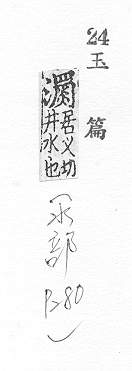 24
玉篇
瀱居乂切
井水也
(水部 P280)